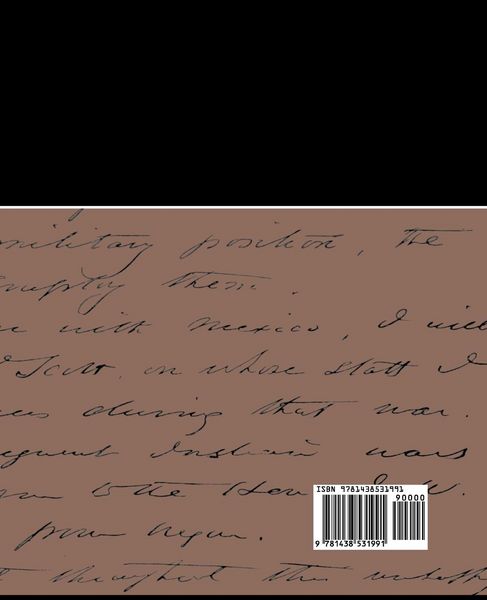 military position, the
employ them.
with Mexico, I will
Scott, on whose staff I
during that war.
Indian wars
to the Hon J. W.
power began.
throughout this
ISBN 9781438531991
90000
9 781438 531991